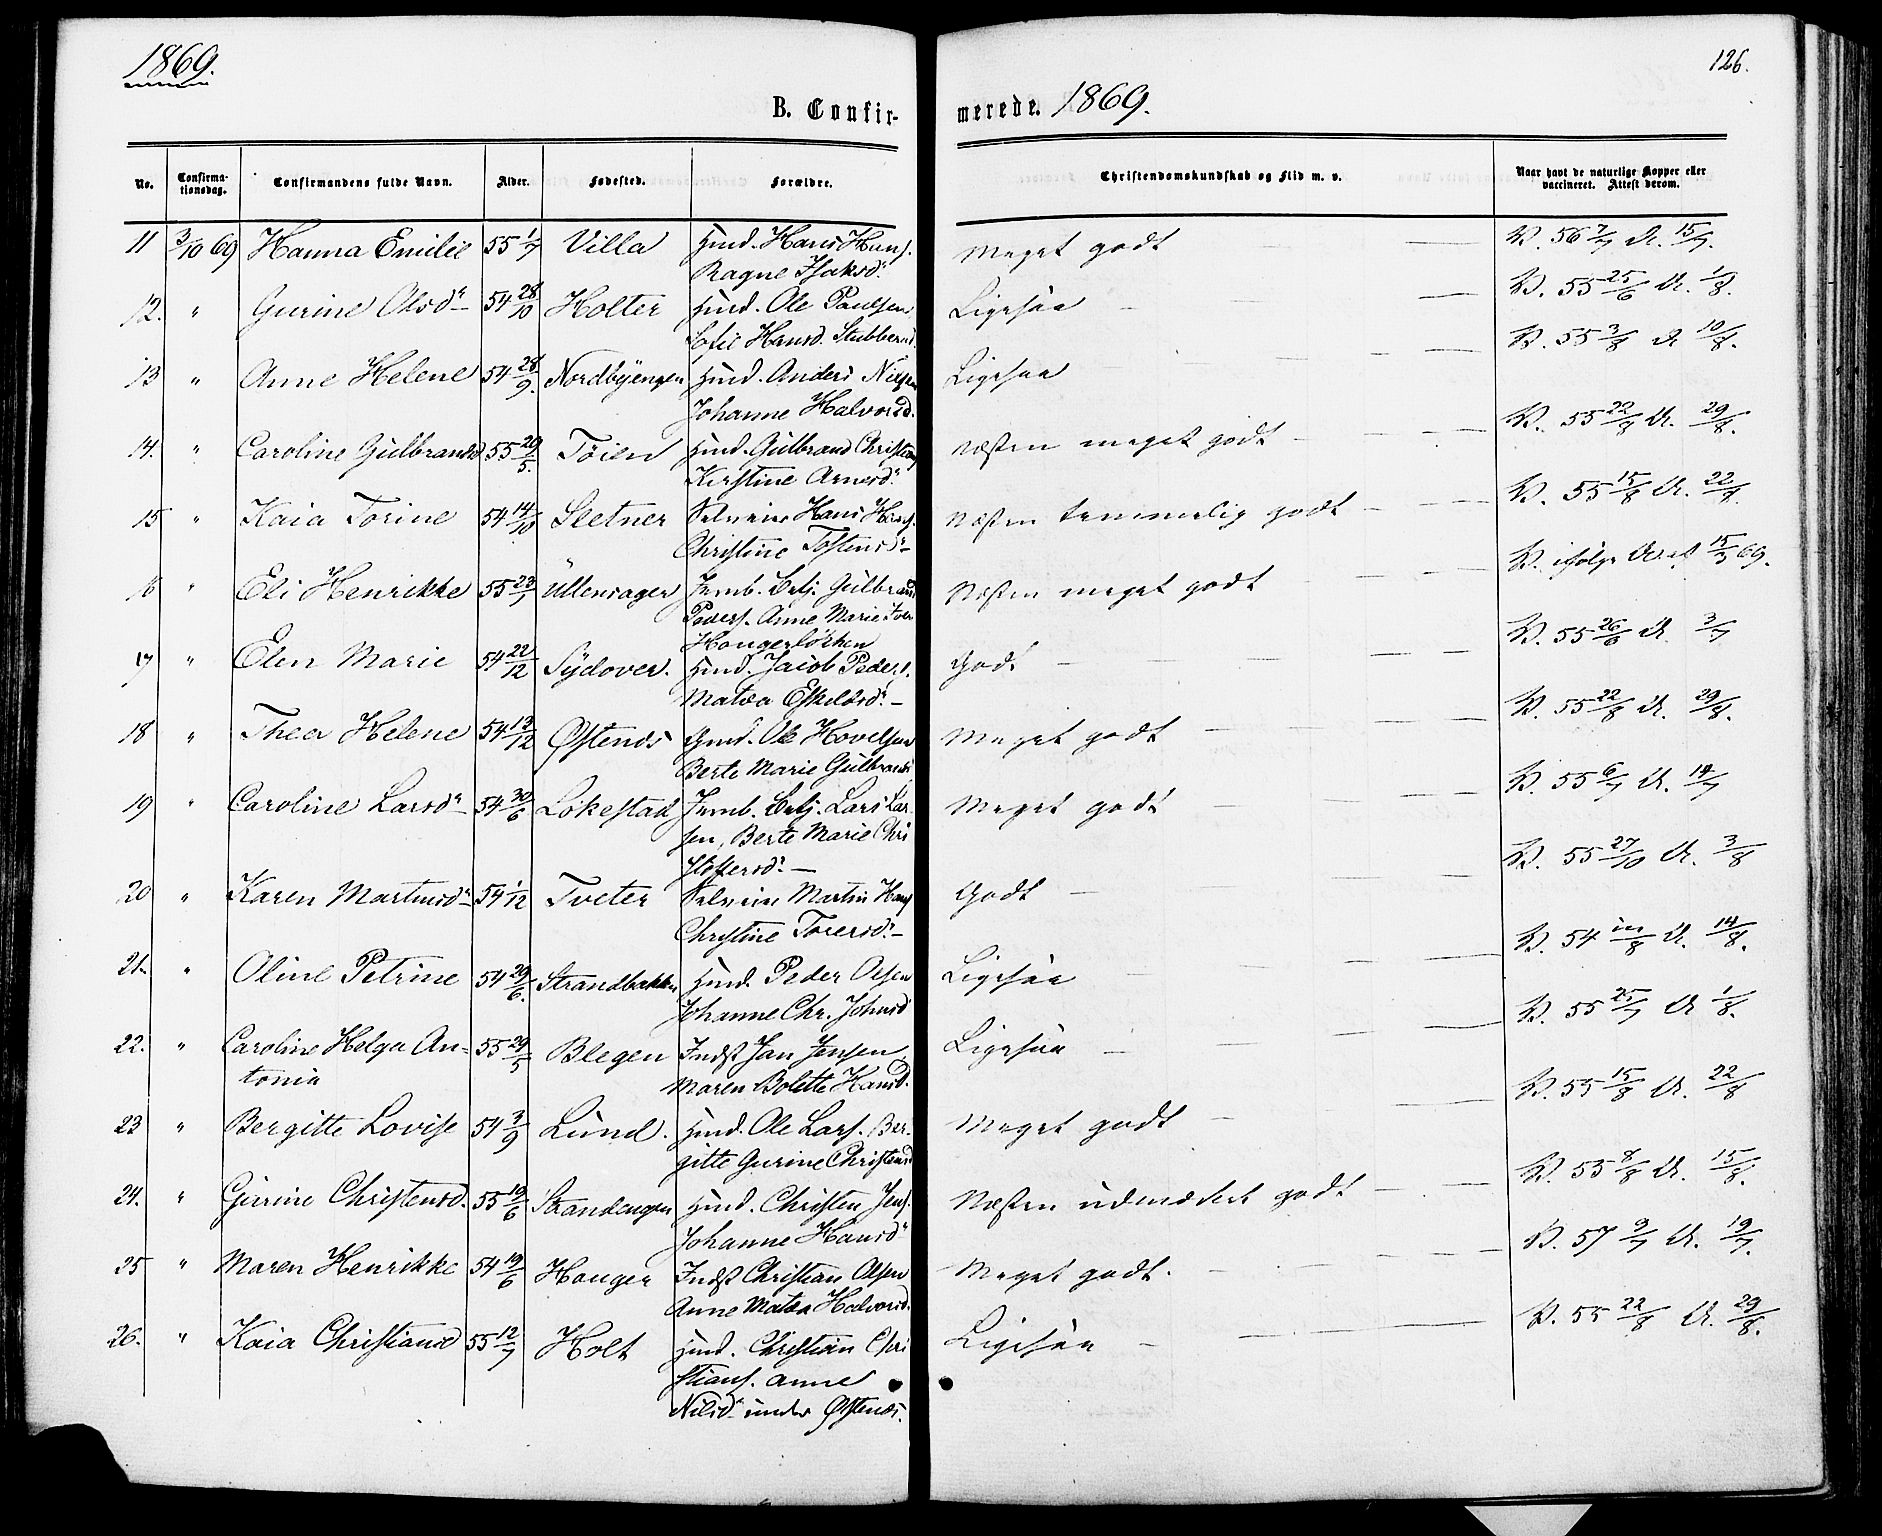 1869.
B. Confir-
No.
Confirma-
tionsdag.
Confirmandens fulde Navn.
Alder.
Fødested.
Forældre.
11 3/10 69 Hanna Emilie 55 1/7 Villa Huusd. Hans Hans.
Ragne Isaksdr.
12. " Gurine Olsdr 54 28/10 Holter Huusd. Ole Paulsen
Sofie Hansd. Stubberud
13 " Anne Helene 54 28/9. Nordbyengen Huusd. Anders Nilsen
Johanne Halvorsd.
14. " Caroline Gulbrandsd 55 29/5. Töien Huusd. Gulbrand Christians
Kirstine Arnesdr.
15 " Kaia Torine 54 14/10 Sletner Selveier Hans Hans.
Christine Tostensdr
16 " Eli Henrikke 55 23/7 Ullensager Jernb. Betj. Gulbrand
Peders. Anne Marie Iver
Haugerløkken
17 " Elen Marie 54 22/12 Sydover. Huusd. Jacob Peders.
Matea Eskelsdr.
18 " Thea Helene 54 13/12 Østenös Huusd. Ole Hovelsen
Berte Marie Gulbrands
19 " Caroline Larsdr 54 30/6 Lökestad Jernb. Betj. Lars Lar-
sen, Berte Marie Chri
stofersdr.
20 " Karen Martinsdr 54 1/12 Tveter Selveier Martin Hans
Christine Toresdr.
21. " Oline Petrine 54 29/6. Strandbakken Huusd. Peder Olsen
Johanne Chr. Johnsd
22. " Caroline Helga An- 55 29/5 Blegen Indst Jan Jensen,
tonia Maren Bolette Hansd.
23 " Bergitte Lovise 54 3/9 Lund. Huusd. Ole Lars. Ber-
gitte Gurine Christensd
24. " Gurine Christensd. 55 19/6 Strandengen Huusd. Christen Jens.
Johanne Hansdr
25 " Maren Henrikke 54 19/6 Hauger Indst Christian Olsen
Anne Matea Halvorsd.
26. " Kaia Christiansd 55 12/7 Holt Huusd. Christian Chri
stians. Anne
Nilsdr. under Østenös.
126.
merede. 1869.
Christendomskundskab og Flid m. v.
Naar havt de naturlige Kopper eller
vaccineret. Attest derom.
Meget godt V. 56 7/7 A. 15/7.
Ligesaa V. 55 25/6 A. 1/8.
Ligesaa V. 55 3/8 A 10/8.
Næsten meget godt V. 55 22/8 A. 29/8.
Næsten temmelig godt V. 55 15/8 A. 22/8.
Næsten meget godt V. ifølge Attest 15/9 69.
Godt V. 55 26/6 A. 3/7
Meget godt V. 55 22/8 A. 29/8.
Meget godt V. 55 6/7 A. 14/7
Godt V. 55 27/10 A. 3/8
Ligesaa V. 54 in/8 A. 14/8.
Ligesaa V. 55 25/7 A 1/8.
Meget godt V. 55 15/8 A. 22/8
Næsten udmærket godt V. 55 8/8 A. 15/8.
Meget godt. V. 57 9/7 A. 19/7.
Ligesaa V. 55 22/8 A. 29/8.